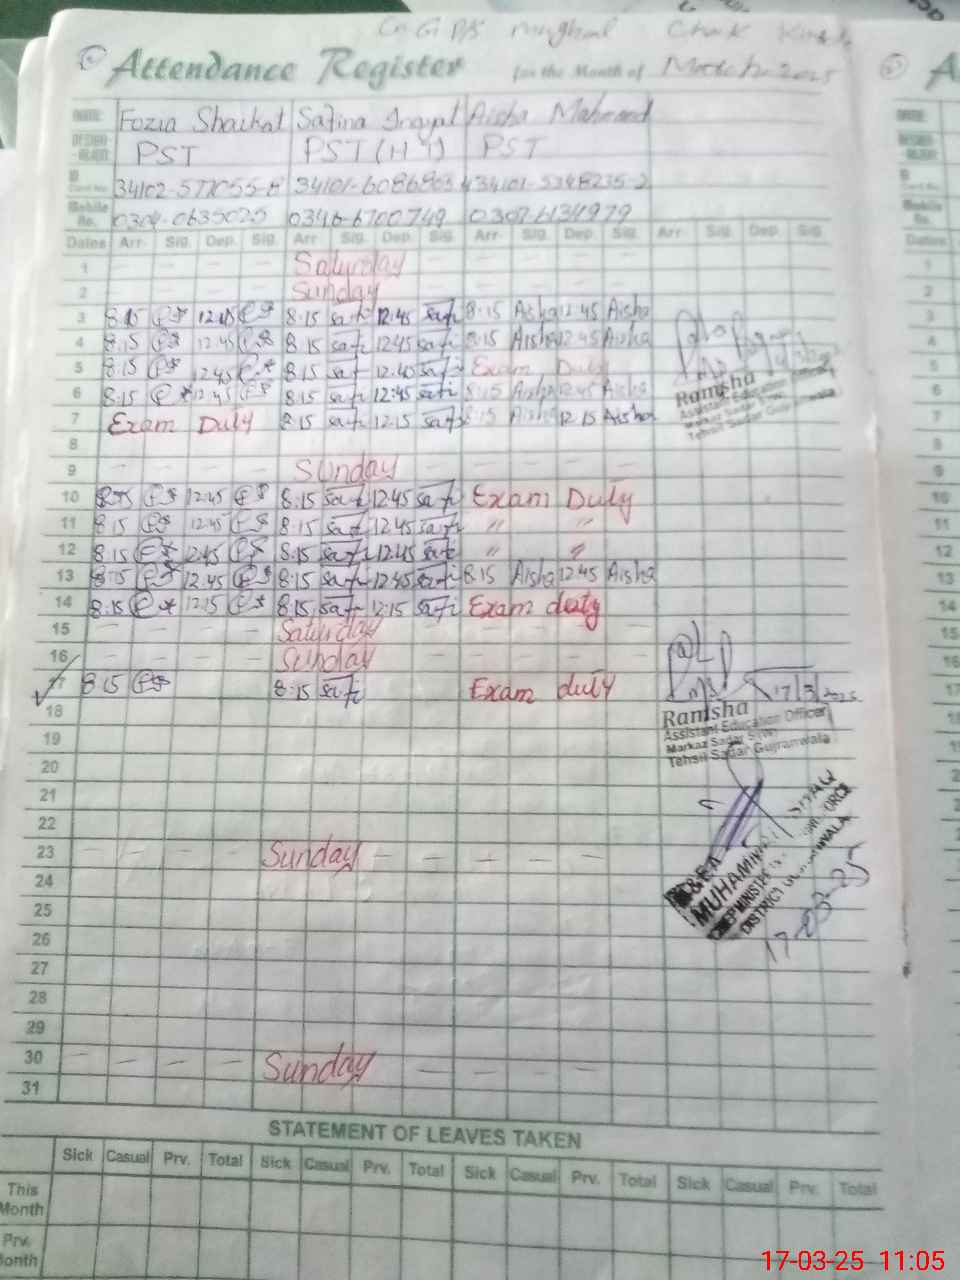 GGPS Mughal Chak
Attendance Register for the Month of March 2025
NAME Fozia Shaukat Safina Inayat Aisha Mahmood
PST PST (HT) PST
34101-5348235-2
Mobile No. 0304-0635025 0346-6700749
Dates Arr. Sig. Dep. Sig. Arr. Sig. Dep. Sig. Arr. Sig. Dep. Sig. Arr. Sig. Dep. Sig.
1 — — — — Saturday — — — —
2 — — — — Sunday — — — —
3 8:15 12:45 8:15 safi 12:45 safi 8:15 Aisha 12:45 Aisha
4 8:15 12:45 8:15 safi 12:45 safi 8:15 Aisha 12:45 Aisha
5 8:15 12:45 8:15 safi 12:45 safi Exam Duty
6 8:15 12:45 8:15 safi 12:45 safi 8:15 Aisha 12:45 Aisha
7 Exam Duty 8:15 safi 12:15 safi 8:15 Aisha 12:15 Aisha
Ramsha
Assistant Education Officer
Tehsil Sadar Gujranwala
8
9 — — — — Sunday — — — —
10 8:15 12:45 8:15 safi 12:45 safi Exam Duty
11 8:15 12:45 8:15 safi 12:45 safi " "
12 8:15 12:45 8:15 safi 12:45 safi " "
13 8:15 12:45 8:15 safi 12:45 safi 8:15 Aisha 12:45 Aisha
14 8:15 12:15 8:15 safi 12:15 safi Exam duty
15 — — — — Saturday — — — —
16 — — — — Sunday — — — —
17 8:15 8:15 safi Exam duty 17/3/2025
18
Ramsha
Assistant Education Officer
Markaz Sadar
Tehsil Sadar Gujranwala
19
20
21
22
23 — — Sunday — — — — —
24
M&EA
MUHAMMAD
DISTRICT GUJRANWALA
17-03-25
25
26
27
28
29
30 — — — — Sunday — — — —
31
STATEMENT OF LEAVES TAKEN
Sick Casual Prv. Total Sick Casual Prv. Total Sick Casual Prv. Total Sick Casual Prv. Total
This Month
Prv. Month
17-03-25 11:05